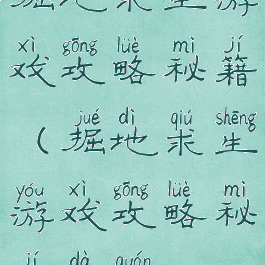 掘地求生游
xì gōng lüè mì jí
戏攻略秘籍
jué dì qiú shēng
(掘地求生
yóu xì gōng lüè mì
游戏攻略秘
jí dà quán